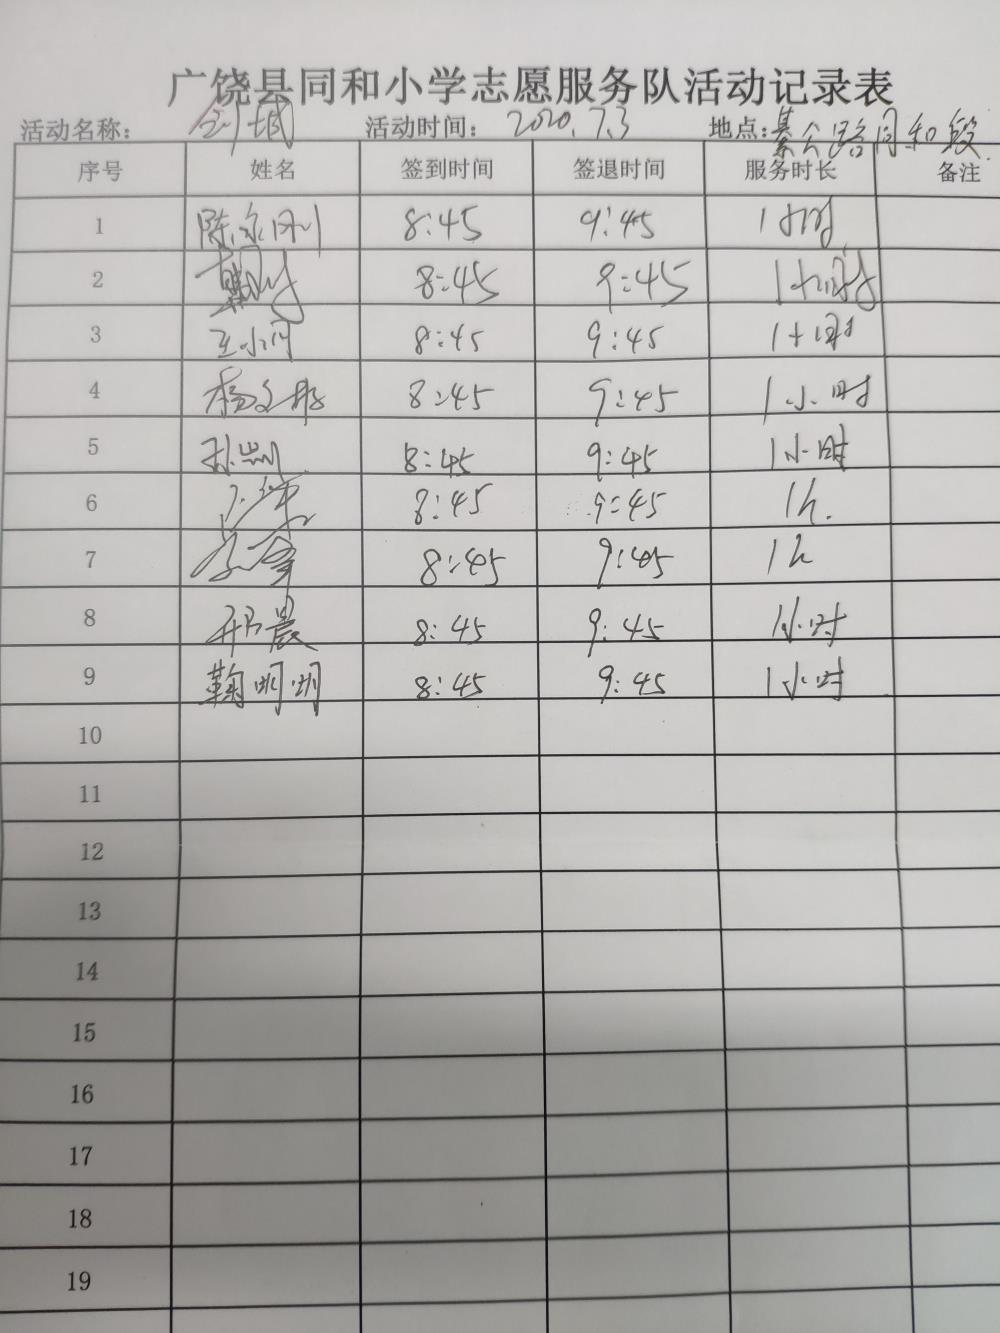 广饶县同和小学志愿服务队活动记录表
活动名称： 创城 活动时间： 2020.7.3 地点：綦公路同和段
序号 姓名 签到时间 签退时间 服务时长 备注
1 陈永刚 8:45 9:45 1小时
2 8:45 9:45 1小时
3 王小丽 8:45 9:45 1小时
4 杨文彬 8:45 9:45 1小时
5 8:45 9:45 1小时
6 8:45 9:45 1h.
7 8:45 9:45 1h
8 邢晨 8:45 9:45 1小时
9 鞠明明 8:45 9:45 1小时
10
11
12
13
14
15
16
17
18
19